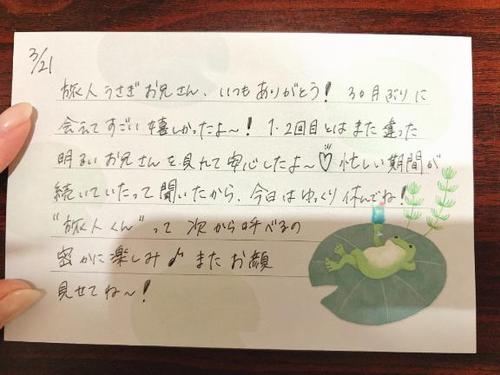 3/21
旅人うさぎお兄さん、いつもありがとう! 3ヶ月ぶりに
会えてすごい嬉しかったよ〜! 1・2回目とはまた違った
明るいお兄さんを見れて安心したよ〜♡ 忙しい期間が
続いていたって聞いたから、今日はゆっくり休んでね!
"旅人くん"って次から呼べるの
密かに楽しみ♪ またお顔
見せてね〜!